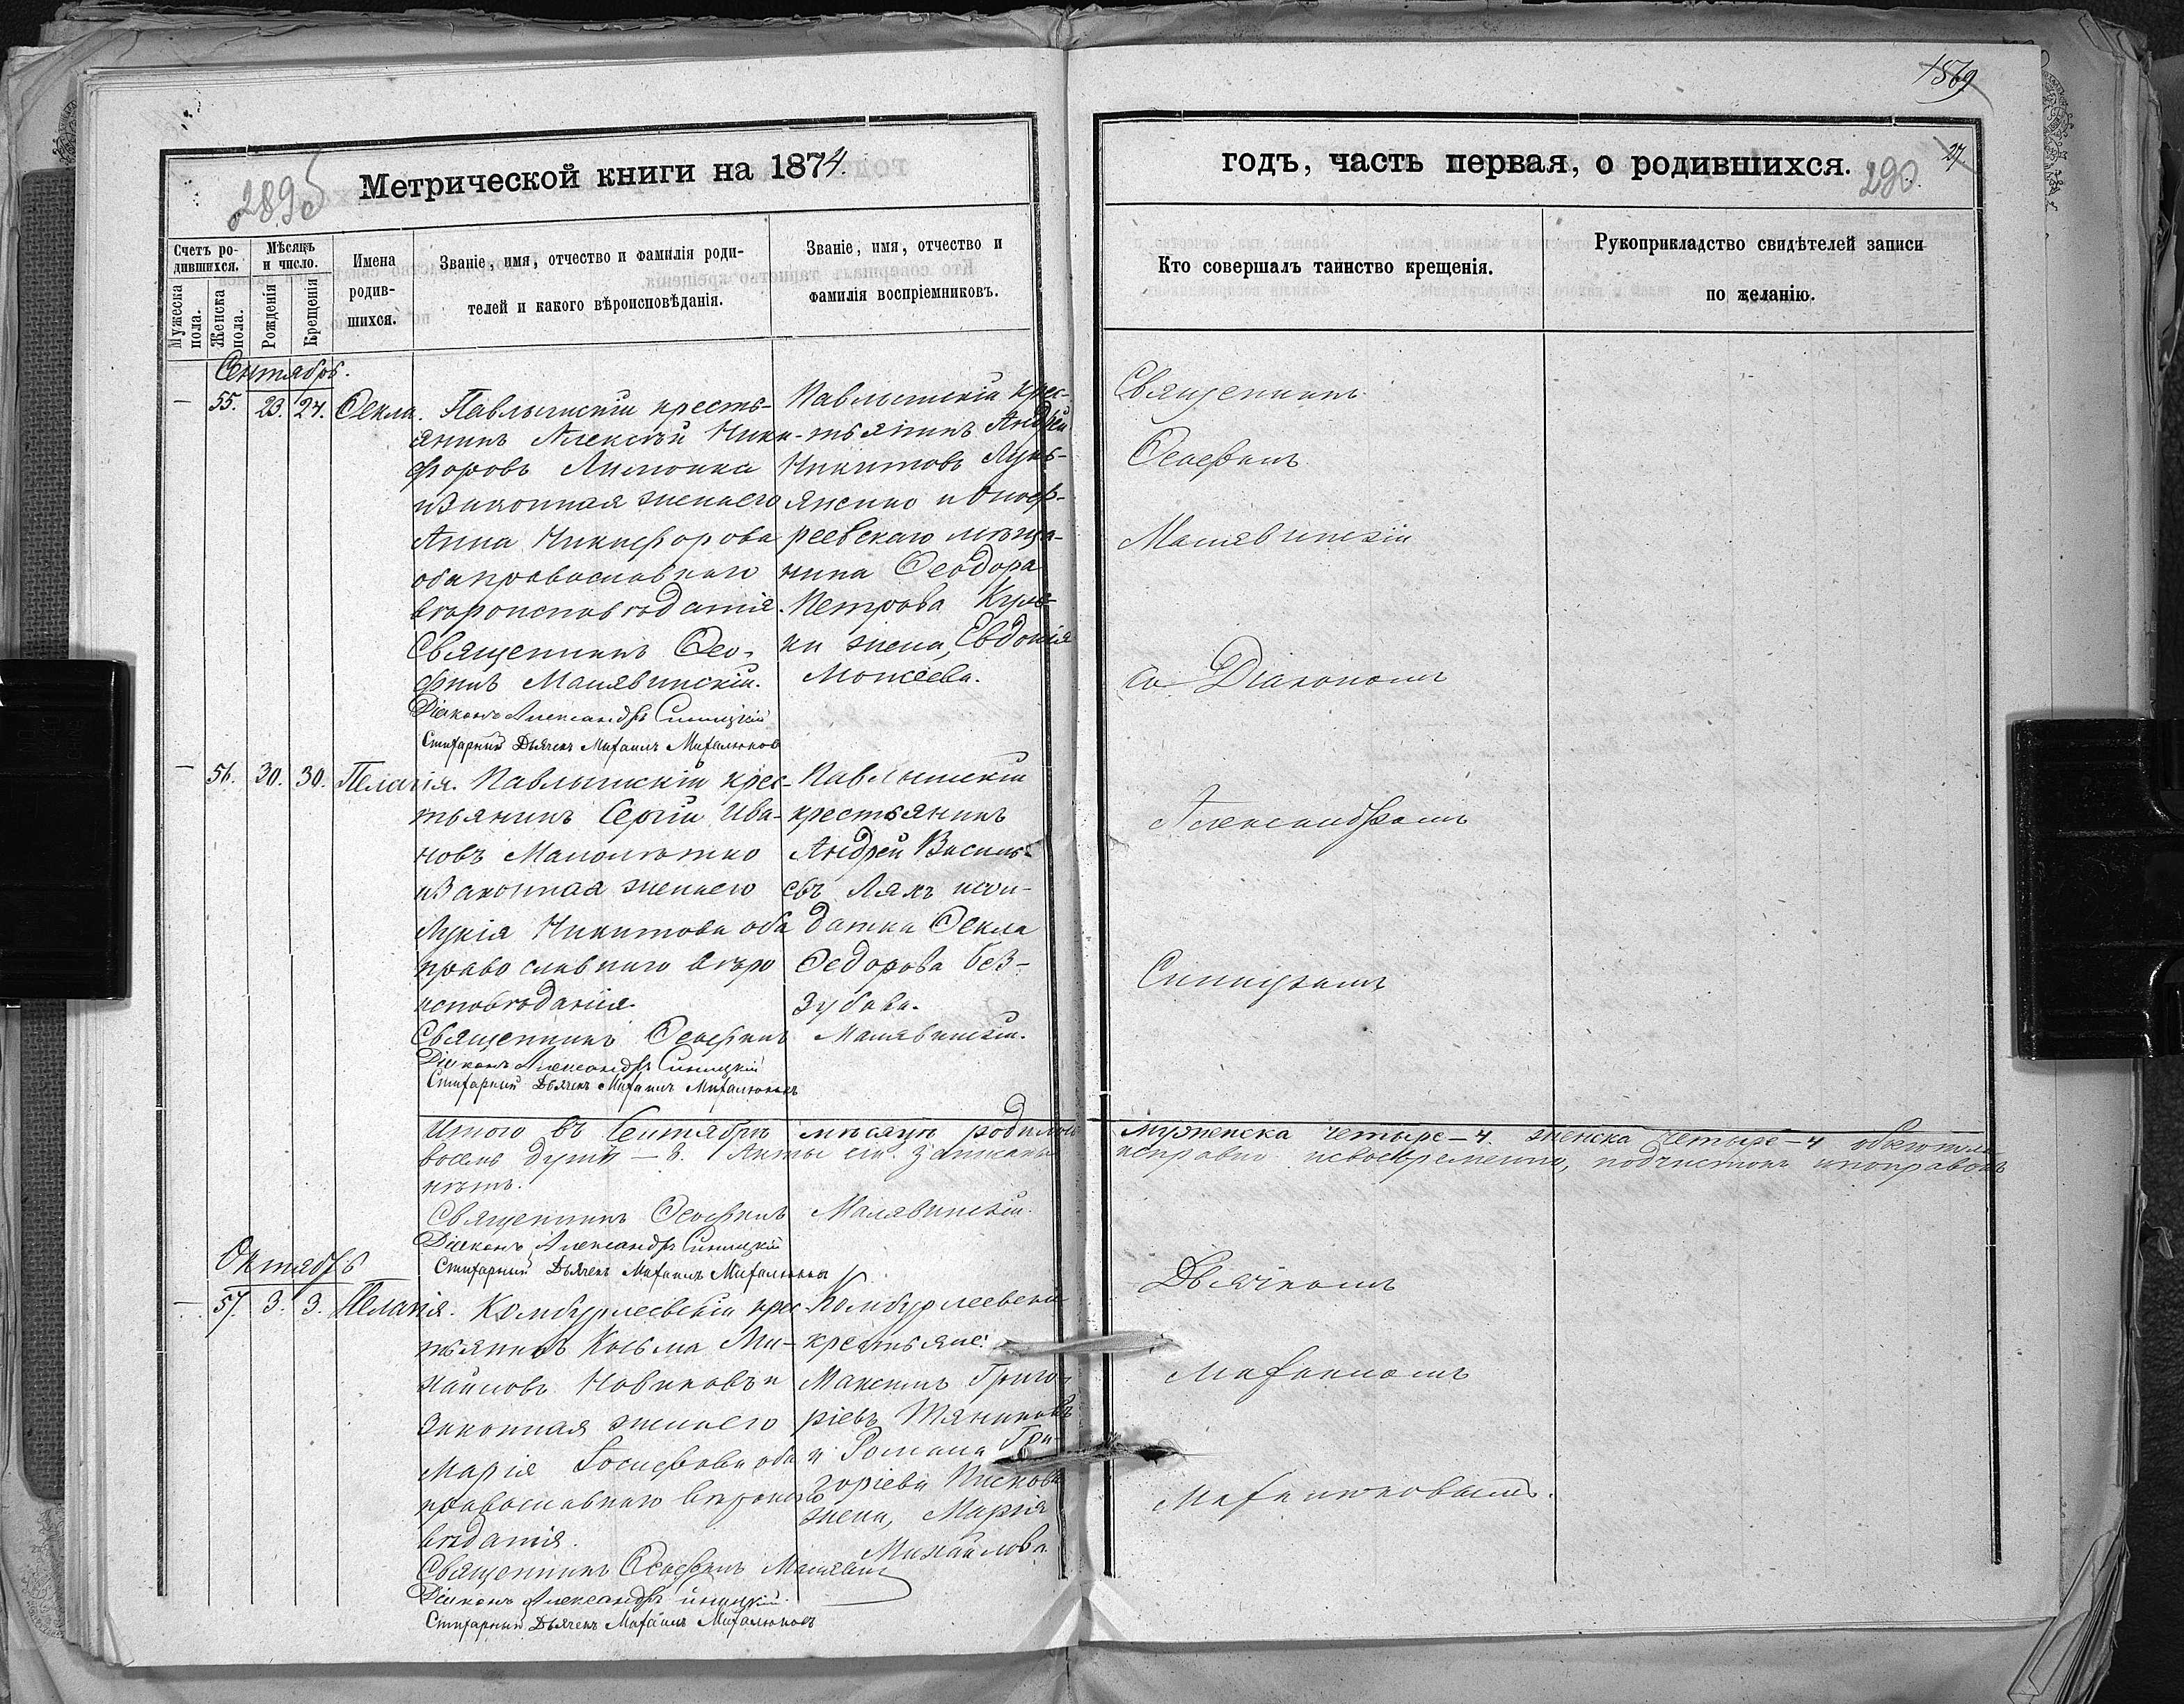 1569
Метрической книги на 1874.
2895
годъ, часть первая, о родившихся.
290.
27
Счетъ ро-
дившихся.
Мужеска пола.
Женска пола.
Мѣсяцъ
и число.
Рожденія
Крещенія
Имена
родив-
шихся.
Званіе, имя, отчество и фамилія роди-
телей и какого вѣроисповѣданія.
Званіе, имя, отчество и
фамилія воспріемниковъ.
Кто совершалъ таинство крещенія.
Рукоприкладство свидѣтелей записи
по желанію.
Сентябрь.
— 55. 23. 24. Ѳекла. Павлышскій кресть-
янинъ Алексѣй Ники-
форовъ
и законная жена его
Анна Никифорова
оба православнаго
вѣроисповѣданія.
Священникъ Ѳео-
филъ Малявинскій.
Діаконъ Александръ Синицкій
Стихарный Дьячекъ Михаилъ Михалюковъ
Павлышскій крес-
тьянинъ Андрей
Никитовъ Лукь-
яненко и Оноф-
реевскаго мѣща-
нина Ѳеодора
Петрова
жена, Евдокія
Моисеева.
Священникъ
Ѳеофилъ
Малявинскій
со Діакономъ
Александромъ
Синицкимъ
— 56. 30. 30. Пелагія. Павлышскій крес-
тьянинъ Сергій Ива-
новъ
и законная жена его
Лукія Никитова оба
православнаго вѣро
исповѣданія.
Священникъ Ѳеофилъ Малявинскій.
Діаконъ Александръ Синицкій
Стихарный Дьячекъ Михаилъ Михалюковъ
Павлышскій
крестьянинъ
Андрей Василь-
евъ Лякъ и сол-
датка Ѳекла
Ѳедорова Без-
зубова.
Итого въ Сентябрѣ мѣсяцѣ родилось мужеска четыре—4. женска четыре—4 обоего пола
восемь душъ—8. Акты сіи записаны исправно и своевременно, подчистокъ и поправокъ
нѣтъ.
Священникъ Ѳеофилъ Малявинскій.
Діаконъ Александръ Синицкій
Стихарный Дьячекъ Михаилъ Михалюковъ
Октябрь
— 57. 3. 3. Пелагія. Комбурлеевскій крес-
тьянинъ Косьма Ми-
хайловъ Новиковъ и
законная жена его
Марія Іосифова оба
православнаго вѣроиспо
вѣданія.
Священникъ Ѳеофилъ Маляви
Діаконъ Александръ Синицкій.
Стихарный Дьячекъ Михаилъ Михалюковъ
Комбурлеевскіе
крестьяне:
Максимъ Григо-
ріевъ
и Романа Гри-
горіева
жена, Марія
Михайлова
Дьячкомъ
Михаиломъ
Михалюковымъ.